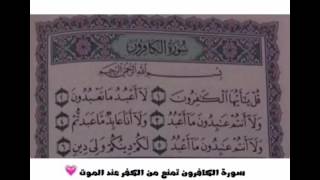 سورة الكافرون
بسم الله الرحمن الرحيم
قل يأيها الكفرون ١ لا أعبد ما تعبدون ٢
ولا أنتم عبدون ما أعبد ٣ ولا أنا عابد ما عبدتم ٤
ولا أنتم عبدون ما أعبد ٥ لكم دينكم ولي دين ٦
سورة الكافرون تمنع من الكفر عند الموت